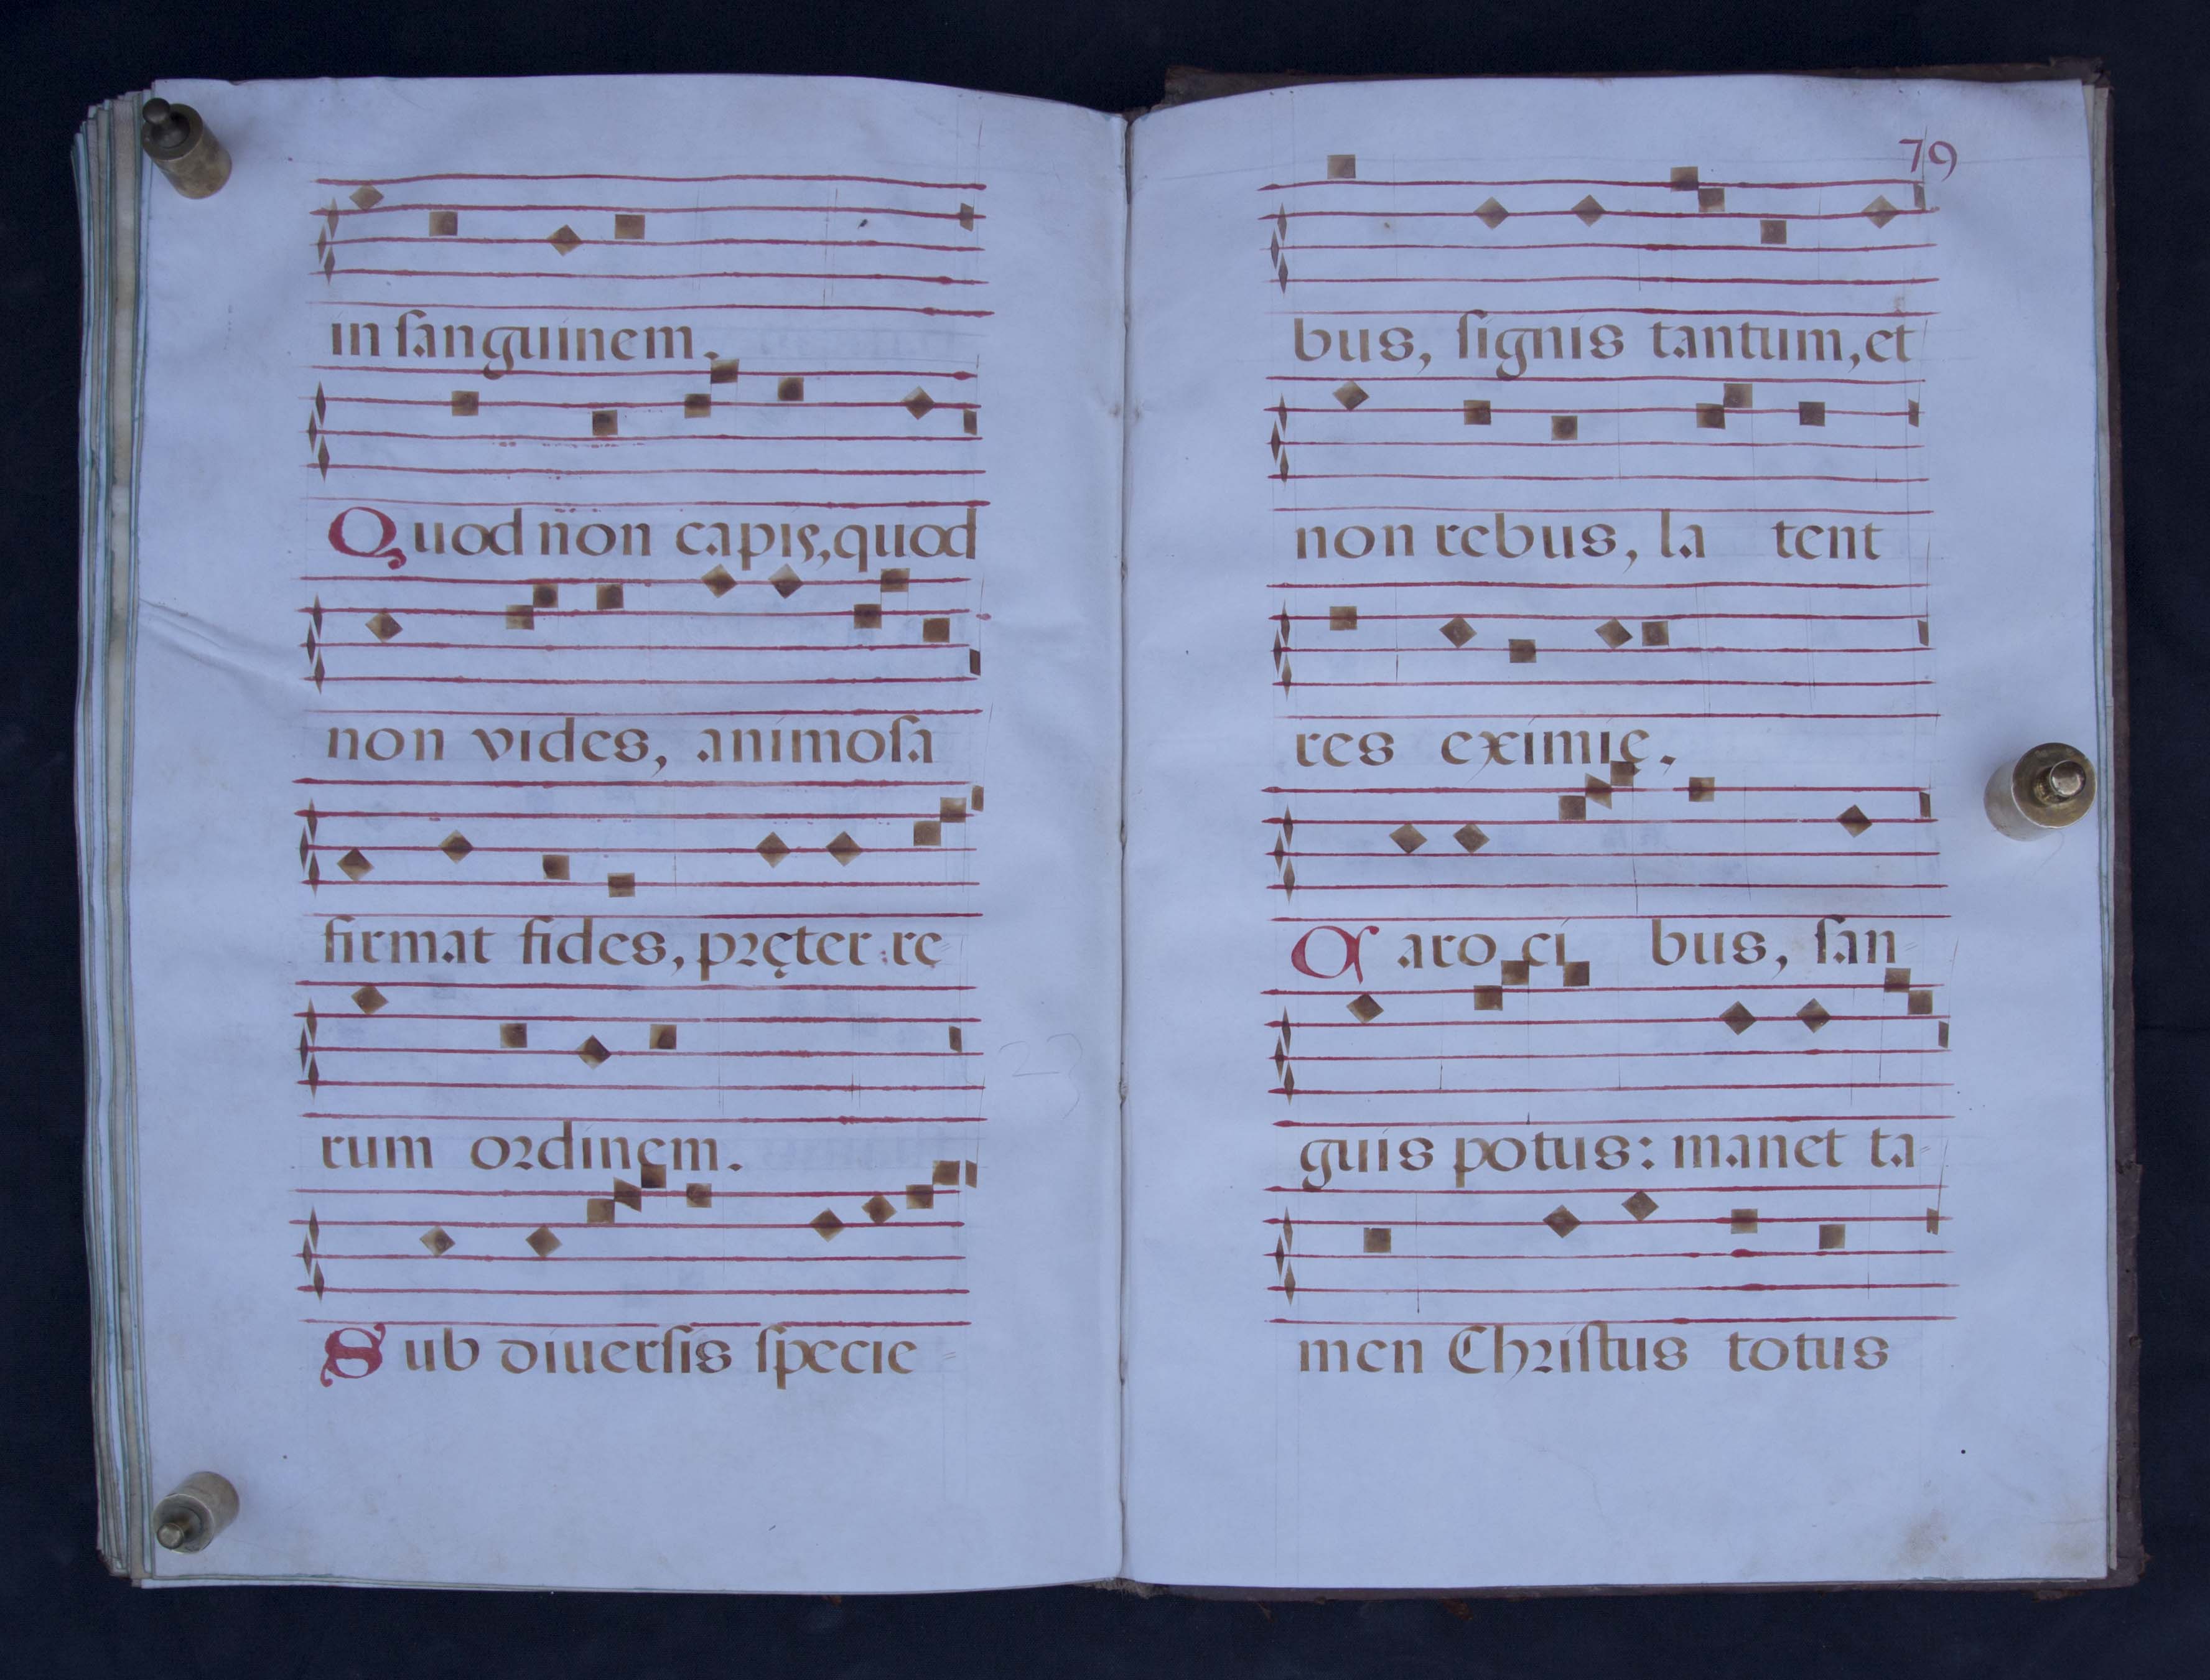 in ſanguinem.
Quod non capis, quod
non vides, animoſa
firmat fides, pręter re
rum ordinem.
Sub diuerſis ſpecie
79
bus, ſignis tantum, et
non rebus, la tent
res eximię.
Caro ci bus, ſan
guis potus: manet ta
men Chriſtus totus